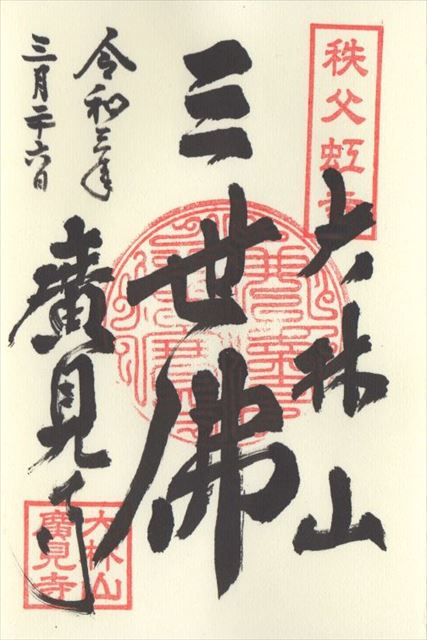 秩父虹寺
大林山
三世佛
令和三年
三月二十六日
廣見寺
大林山
廣見寺